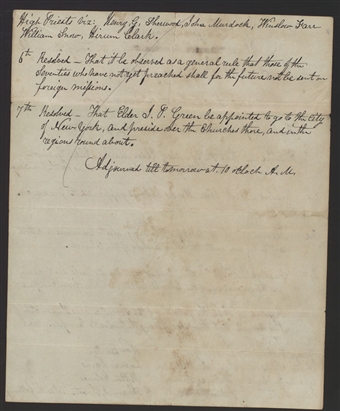 High Priests viz; Henry G. Sherwood, John Murdock, Winslow Farr
William Snow, Hirum Clark.
6th Resolved – That it be observed as a general rule that those of the
Seventies who have not yet preached shall for the future not be sent on
foreign missions.
7th Resolved – That Elder J. P. Green be appointed to go to the City
of New York, and preside over the Churches there, and in the
regions round about.
Adjourned till tomorrow at 10 oclock A.M.